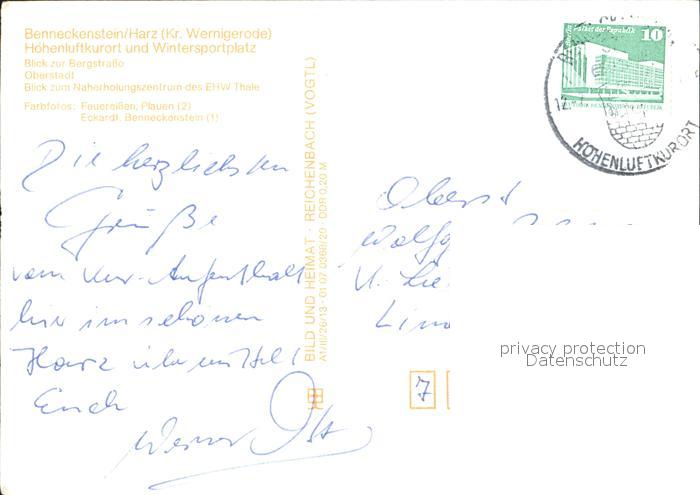 Benneckenstein/Harz (Kr. Wernigerode)
Höhenluftkurort und Wintersportplatz
Blick zur Bergstraße
Oberstadt
Blick zum Naherholungszentrum des EHW Thale
Farbfotos: Feuereißen, Plauen (2)
Eckardt, Benneckenstein (1)
BILD UND HEIMAT · REICHENBACH (VOGTL)
A1/III/26/13 · 01 07 0368/20 · DDR 0,20 M
Palast der Republik
10
HÖHENLUFTKURORT
Die herzlichsten
Grüße
vom Kur-Aufenthalt
hier im schönen
Harz übermittelt
Euch
Werner Ott
Oberst
Wolfg
U. Lie
Lin
privacy protection
Datenschutz
7